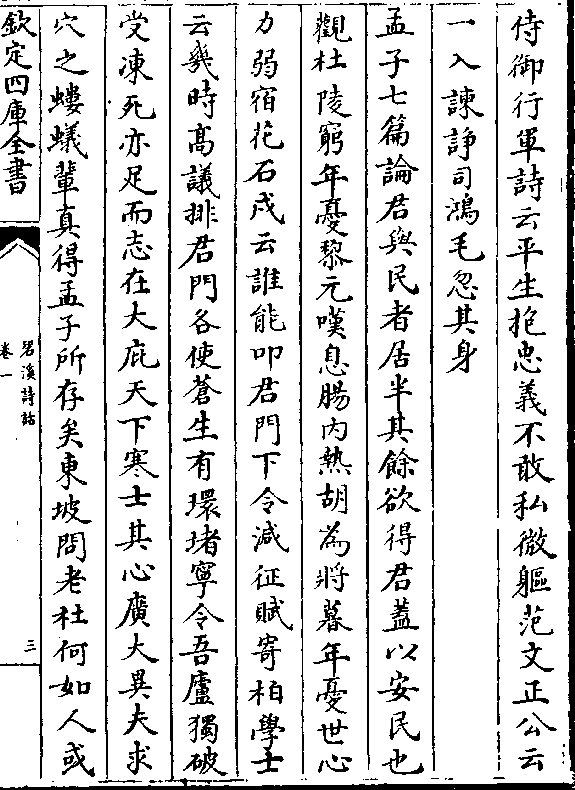 侍御行軍詩云平生抱忠義不敢私微軀范文正公云
一入諫諍司鴻毛忽其身
孟子七篇論君與民者居半其餘欲得君蓋以安民也
觀杜陵窮年憂黎元嘆息腸内熱胡為將暮年憂世心
力弱宿花石戍云誰能叩君門下令減征賦寄柏學士
云㡬時髙議排君門各使蒼生有環堵寧令吾廬獨破
受凍死亦足而志在大庇天下寒士其心廣大異夫求
穴之螻蟻輩真得孟子所存矣東坡問老杜何如人或
欽定四庫全書
䂬溪詩話
卷一
三